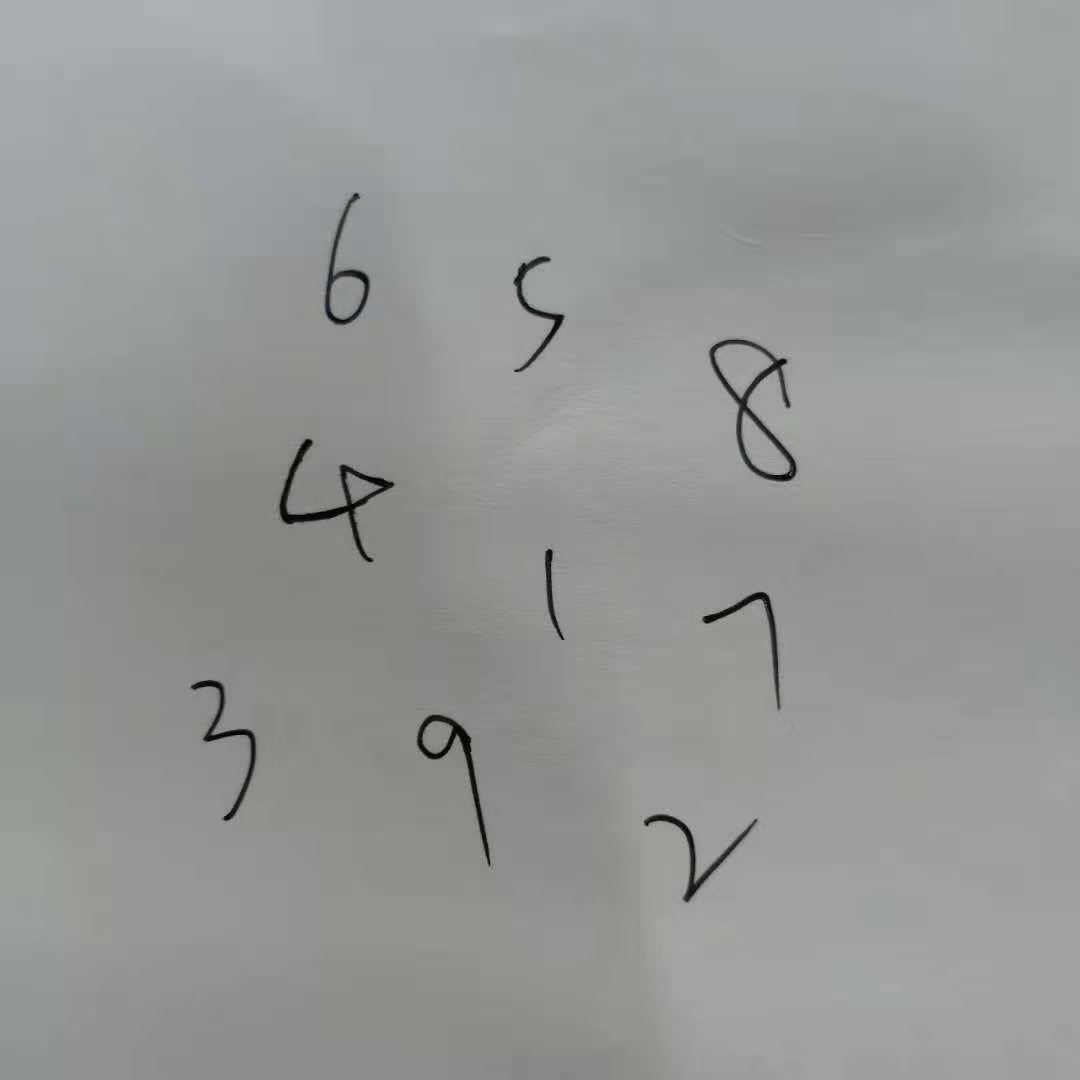 6 5 8
4 1 7
3 9 2